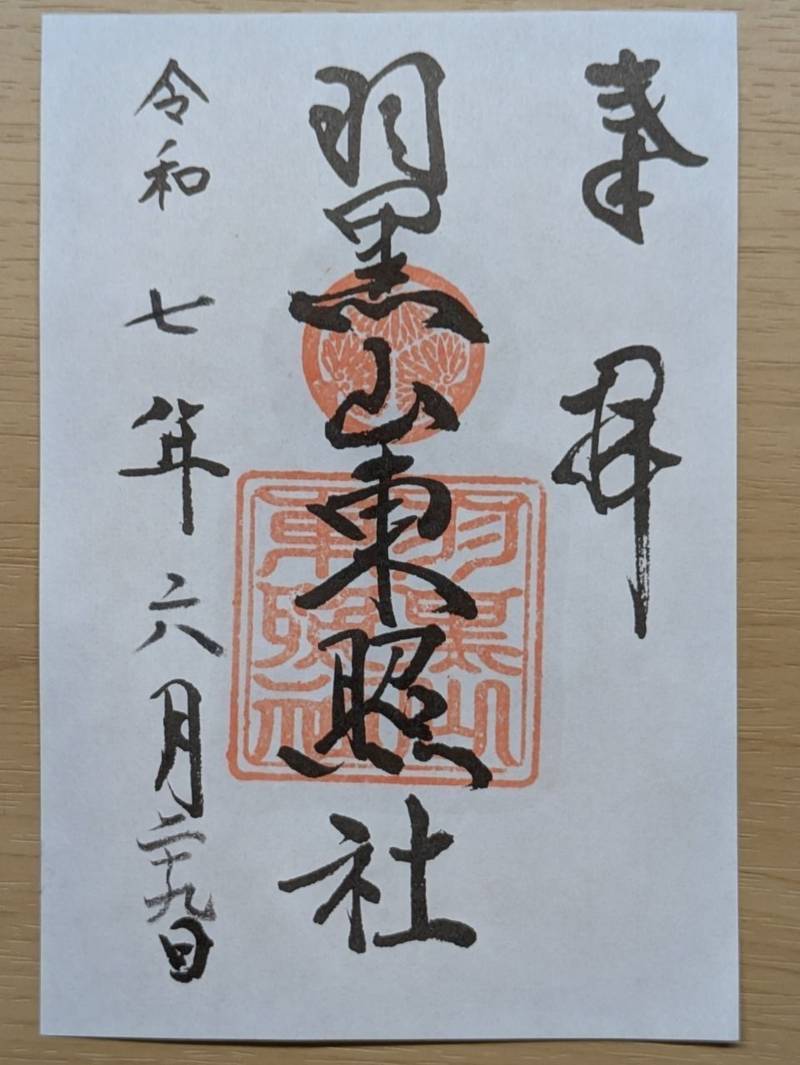 奉拝
羽黒山東照社
令和七年六月二十九日
羽黒山
東照社